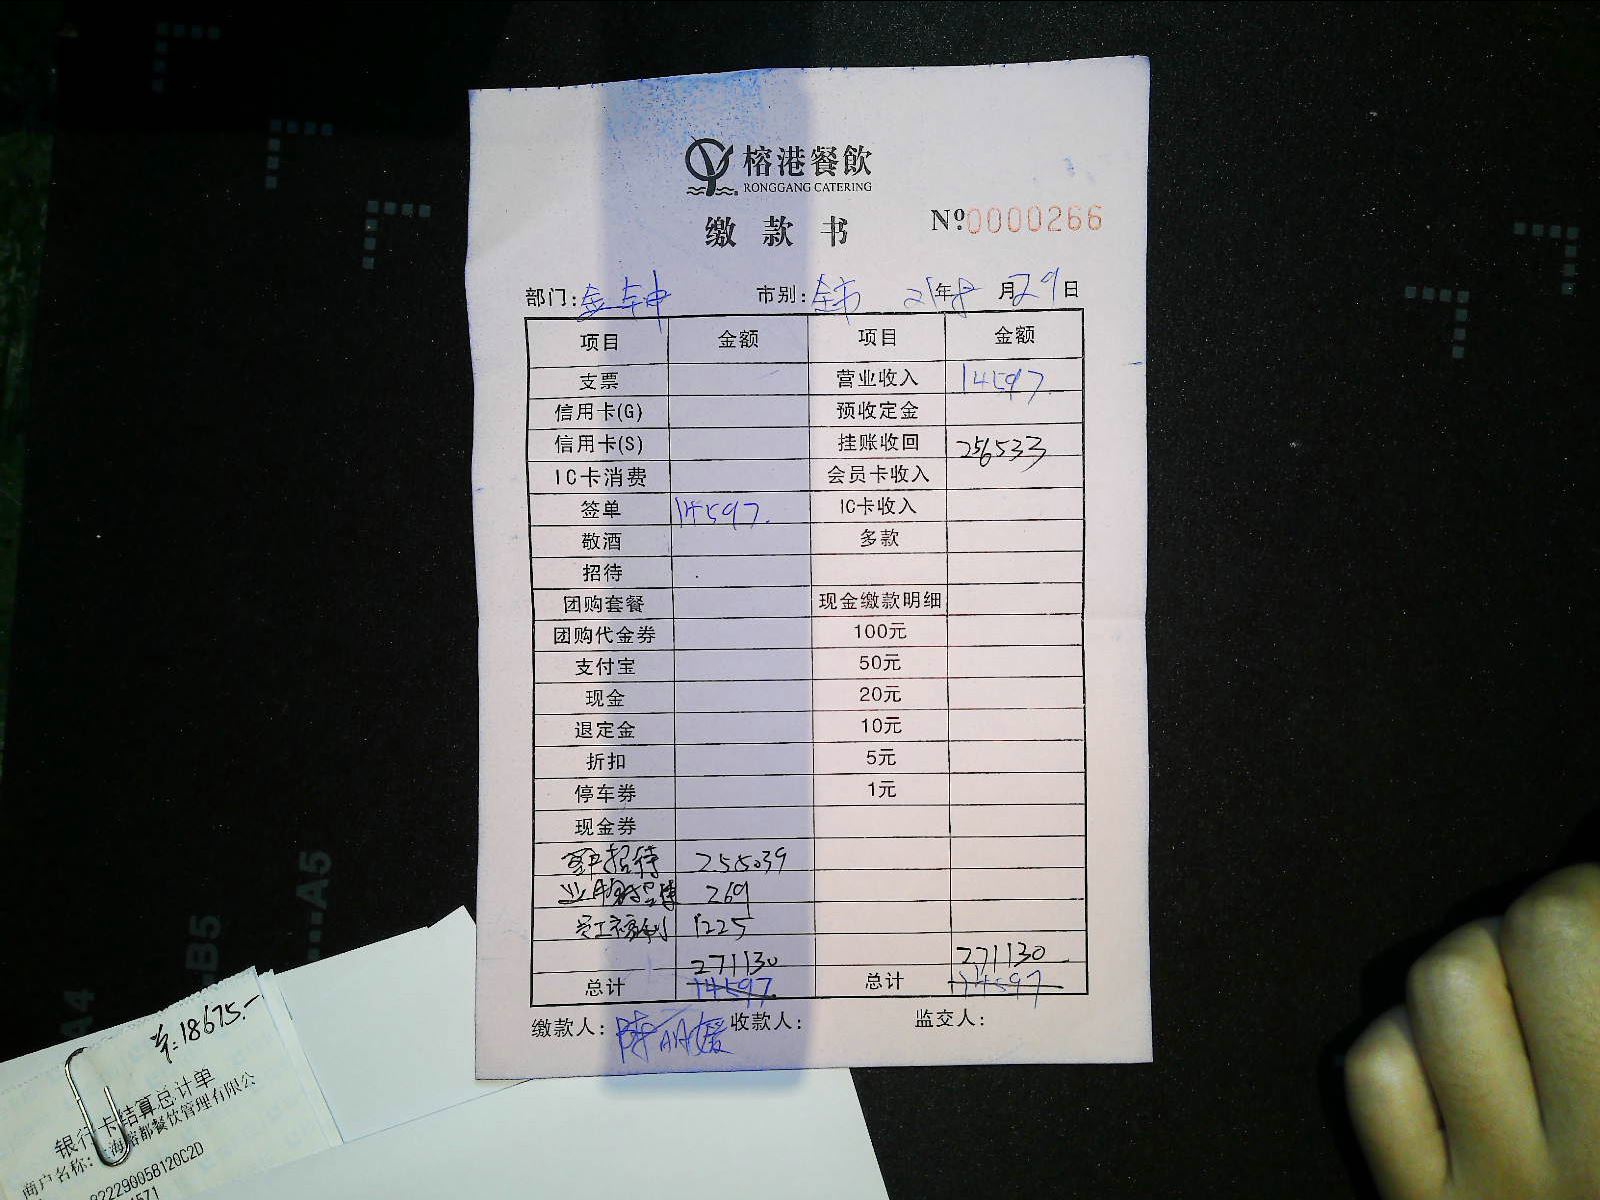 榕港餐飲
RONGGANG CATERING
缴款书 №0000266
部门: 市别:全市 21年8月29日
项目 金额 项目 金额
支票 营业收入 14597
信用卡(G) 预收定金
信用卡(S) 挂账收回 256533
IC卡消费 会员卡收入
签单 14597. IC卡收入
敬酒 多款
招待
团购套餐 现金缴款明细
团购代金券 100元
支付宝 50元
现金 20元
退定金 10元
折扣 5元
停车券 1元
现金券
招待 255039
业务招待 269
员工福利 1225
271130 271130
总计 14597 总计 14597
缴款人:陈丽媛 收款人: 监交人:
18675.-
银行卡结算总计单
商户名称: 海榕都餐饮管理有限公
822290058120C2D
4571
A4
B5
A5